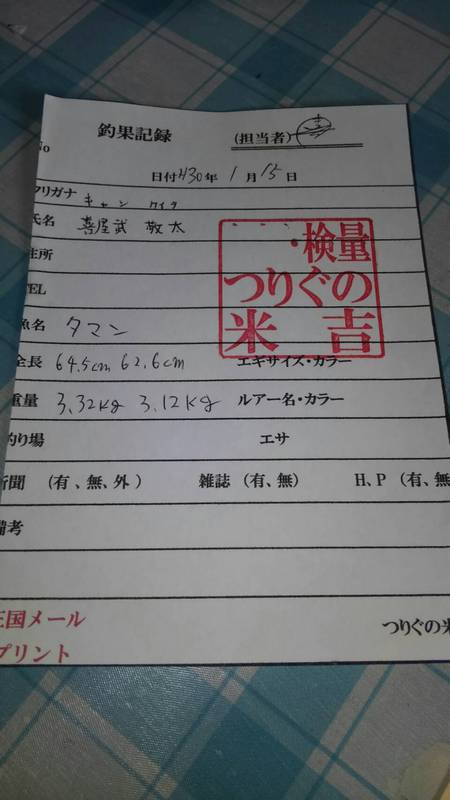 釣果記録 (担当者)
No
日付 H30年 1月15日
フリガナ キャン ケイタ
氏名 喜屋武 敬太
住所
・検量
つりぐの
米吉
TEL
魚名 タマン
全長 64.5cm 62.6cm エギサイズ・カラー
重量 3.32kg 3.12kg ルアー名・カラー
釣り場 エサ
新聞 (有、無、外) 雑誌 (有、無) H、P (有、無
備考
王国メール つりぐの米
プリント